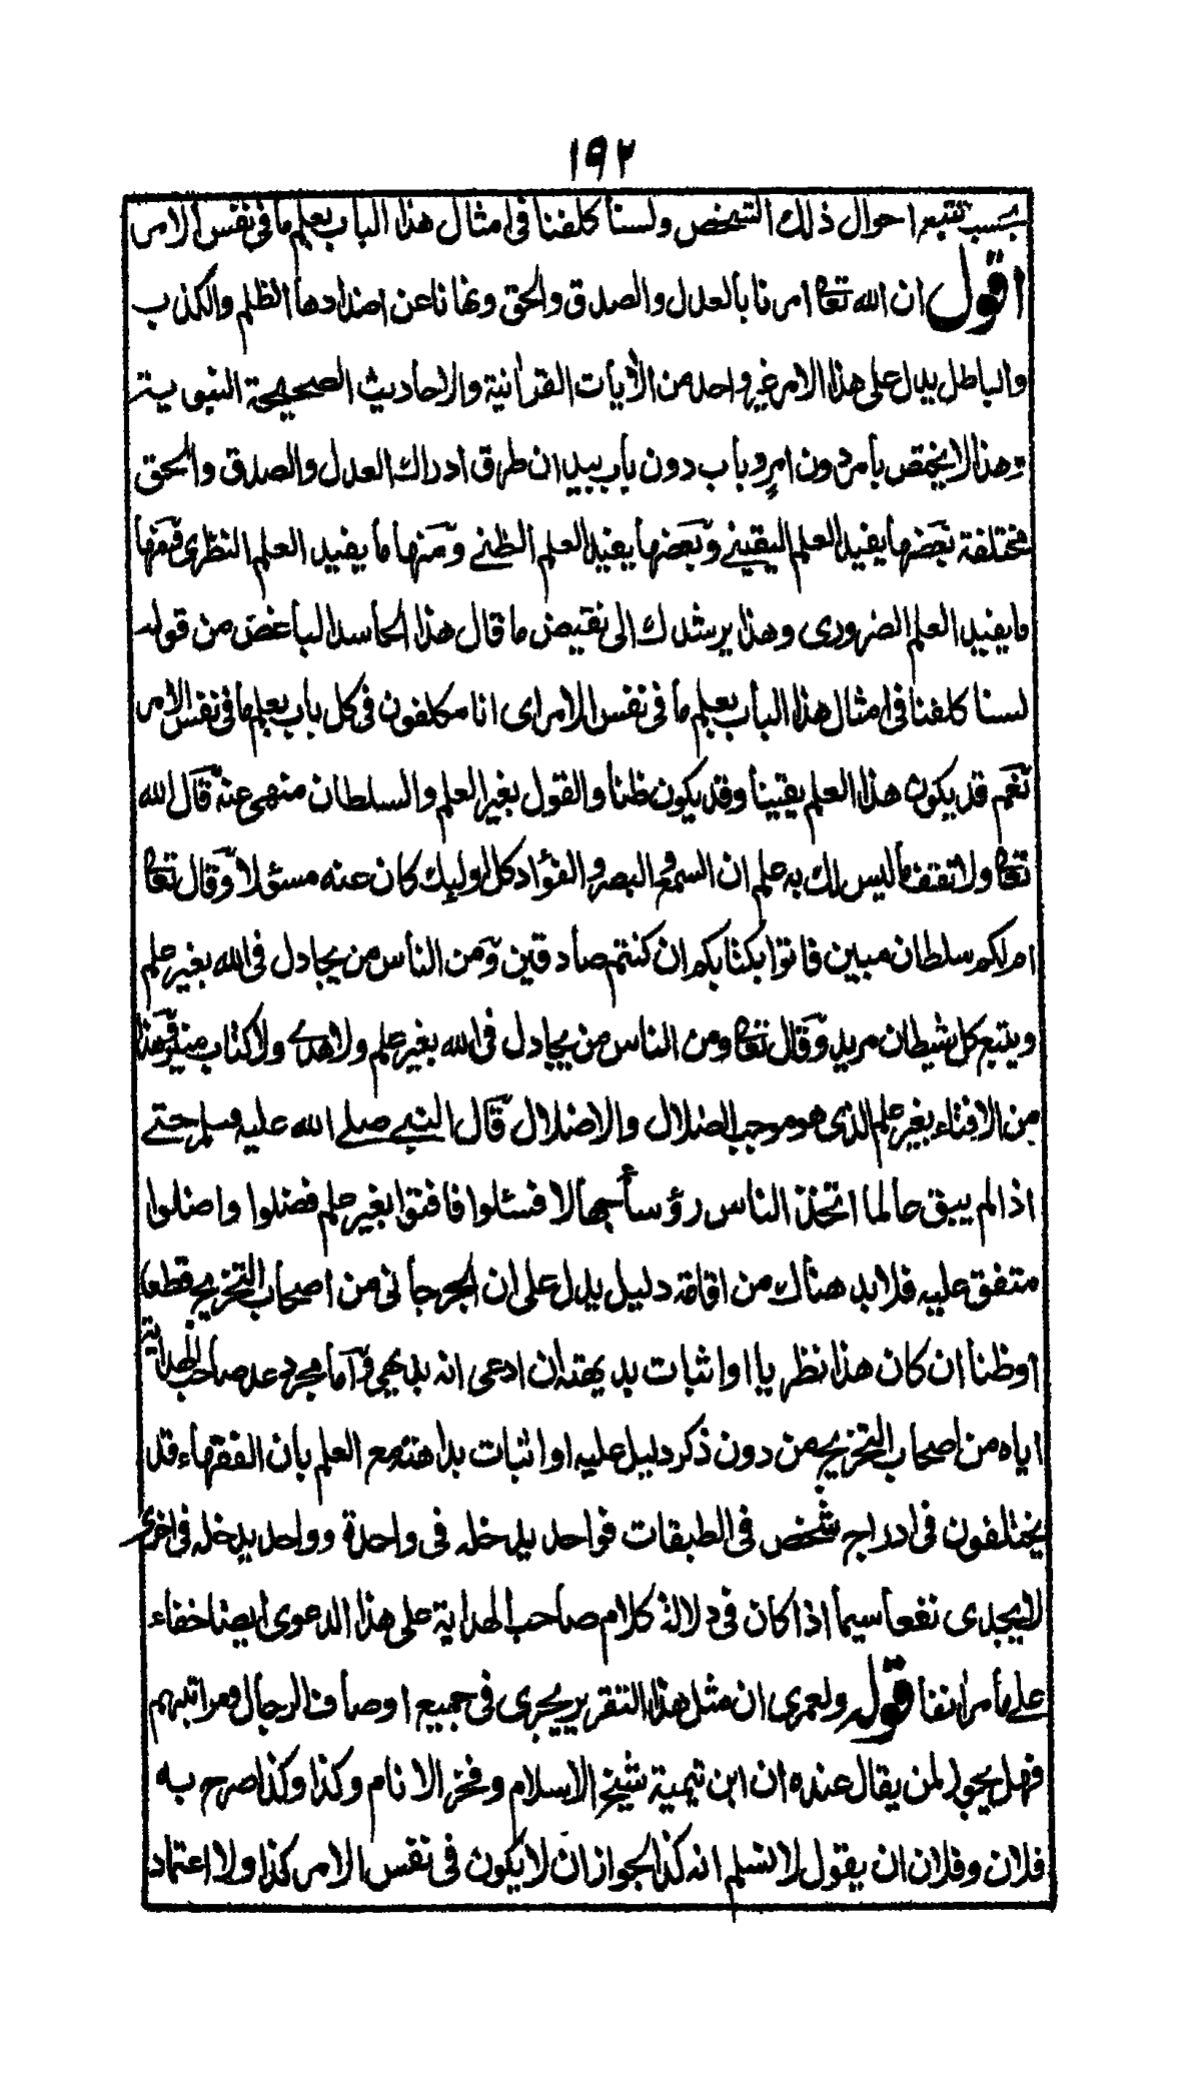 ١٩٢
بحسب تتبعه احوال ذلك الشخص ولسنا كلفنا فى امثال هذا الباب بعلم ما فى نفس الامر
اقول ان الله تعالى امرنا بالعدل والصدق والحق ونهانا عن اضدادها الظلم والكذب
والباطل يدل على هذا الامر غير واحد من الآيات القرآنية والاحاديث الصحيحة النبوية
وهذا لا يختص بامر دون امر وباب دون باب بيد ان طرق ادراك العدل والصدق والحق
مختلفة بعضها يفيد العلم اليقينے وبعضها يفيد العلم الظنے ومنها ما يفيد العلم النظرى ومنها
ما يفيد العلم الضرورى وهذا يرشدك الى نقيض ما قال هذا الحاسد الباغض من قوله
لسنا كلفنا فى امثال هذا الباب بعلم ما فى نفس الامر اى انا مكلفون فى كل باب بعلم ما فى نفس الامر
نعم قد يكون هذا العلم يقينا وقد يكون ظنا والقول بغير العلم والسلطان منهى عنه قال الله
تعالى ولا تقف ما ليس لك به علم ان السمع والبصر والفؤاد كل اولئك كان عنه مسئولا وقال تعالى
ام لكم سلطان مبين فاتوا بكتابكم ان كنتم صادقين ومن الناس من يجادل فى الله بغير علم
ويتبع كل شيطان مريد وقال تعالى ومن الناس من يجادل فى الله بغير علم ولا هدى ولا كتاب منير فهذا
من الافتاء بغير علم الذى هو موجب الضلال والاضلال قال النبے صلے الله عليه وسلم حتے
اذا لم يبق عالما اتخذ الناس رؤسا جهالا فسئلوا فافتوا بغير علم فضلوا واضلوا
متفق عليه فلا بد هناك من اقامة دليل يدل على ان الجرجانى من اصحاب التخريج قطعا
او ظنا ان كان هذا نظريا او اثبات بديهته ان ادعى انه بديهى واما مجرد عد صاحب الهداية
اياه من اصحاب التخريج من دون ذكر دليل عليه او اثبات بداهته مع العلم بان الفقهاء قد
يختلفون فى ادراج شخص فى الطبقات فواحد يدخله فى واحدة وواحد يدخله فى اخرى
لا يجدى نفعا سيما اذا كان فى دلالة كلام صاحب الهداية على هذا الدعوى ايضا خفاء
علے ما مر انفا قوله ولعمرى ان مثل هذا التقرير يجرى فى جميع اوصاف الرجال ومراتبهم
فهل يجوز لمن يقال عنده ان ابن تيمية شيخ الاسلام وفخر الانام وكذا وكذا صرح به
فلان وفلان ان يقول لا نسلم انه كذا لجواز ان لا يكون فى نفس الامر كذا ولا اعتماد